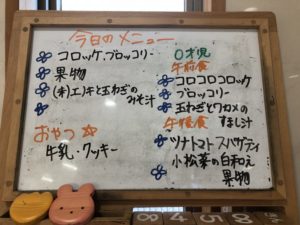 今日のメニュー
コロッケ、ブロッコリー
果物
(米)エノキと玉ねぎの
みそ汁
おやつ
牛乳・クッキー
0才児
午前食
コロコロコロッケ
ブロッコリー
玉ねぎとワカメの
すまし汁
午後食
ツナトマトスパゲティ
小松菜の白和え
果物